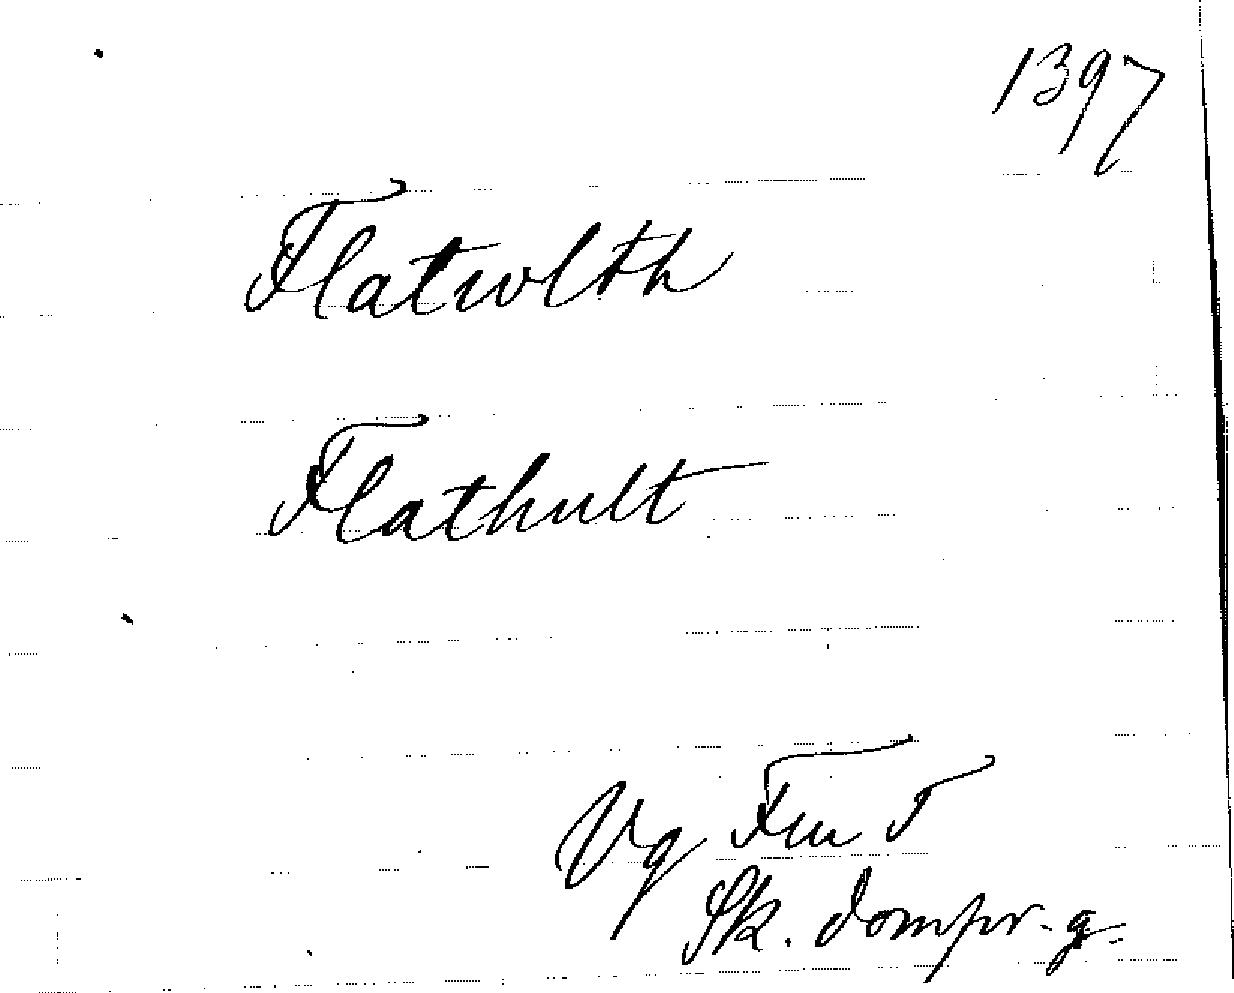 1397
Flatwlth
Flathult
Vg Fru T
Sk. dompr. g: